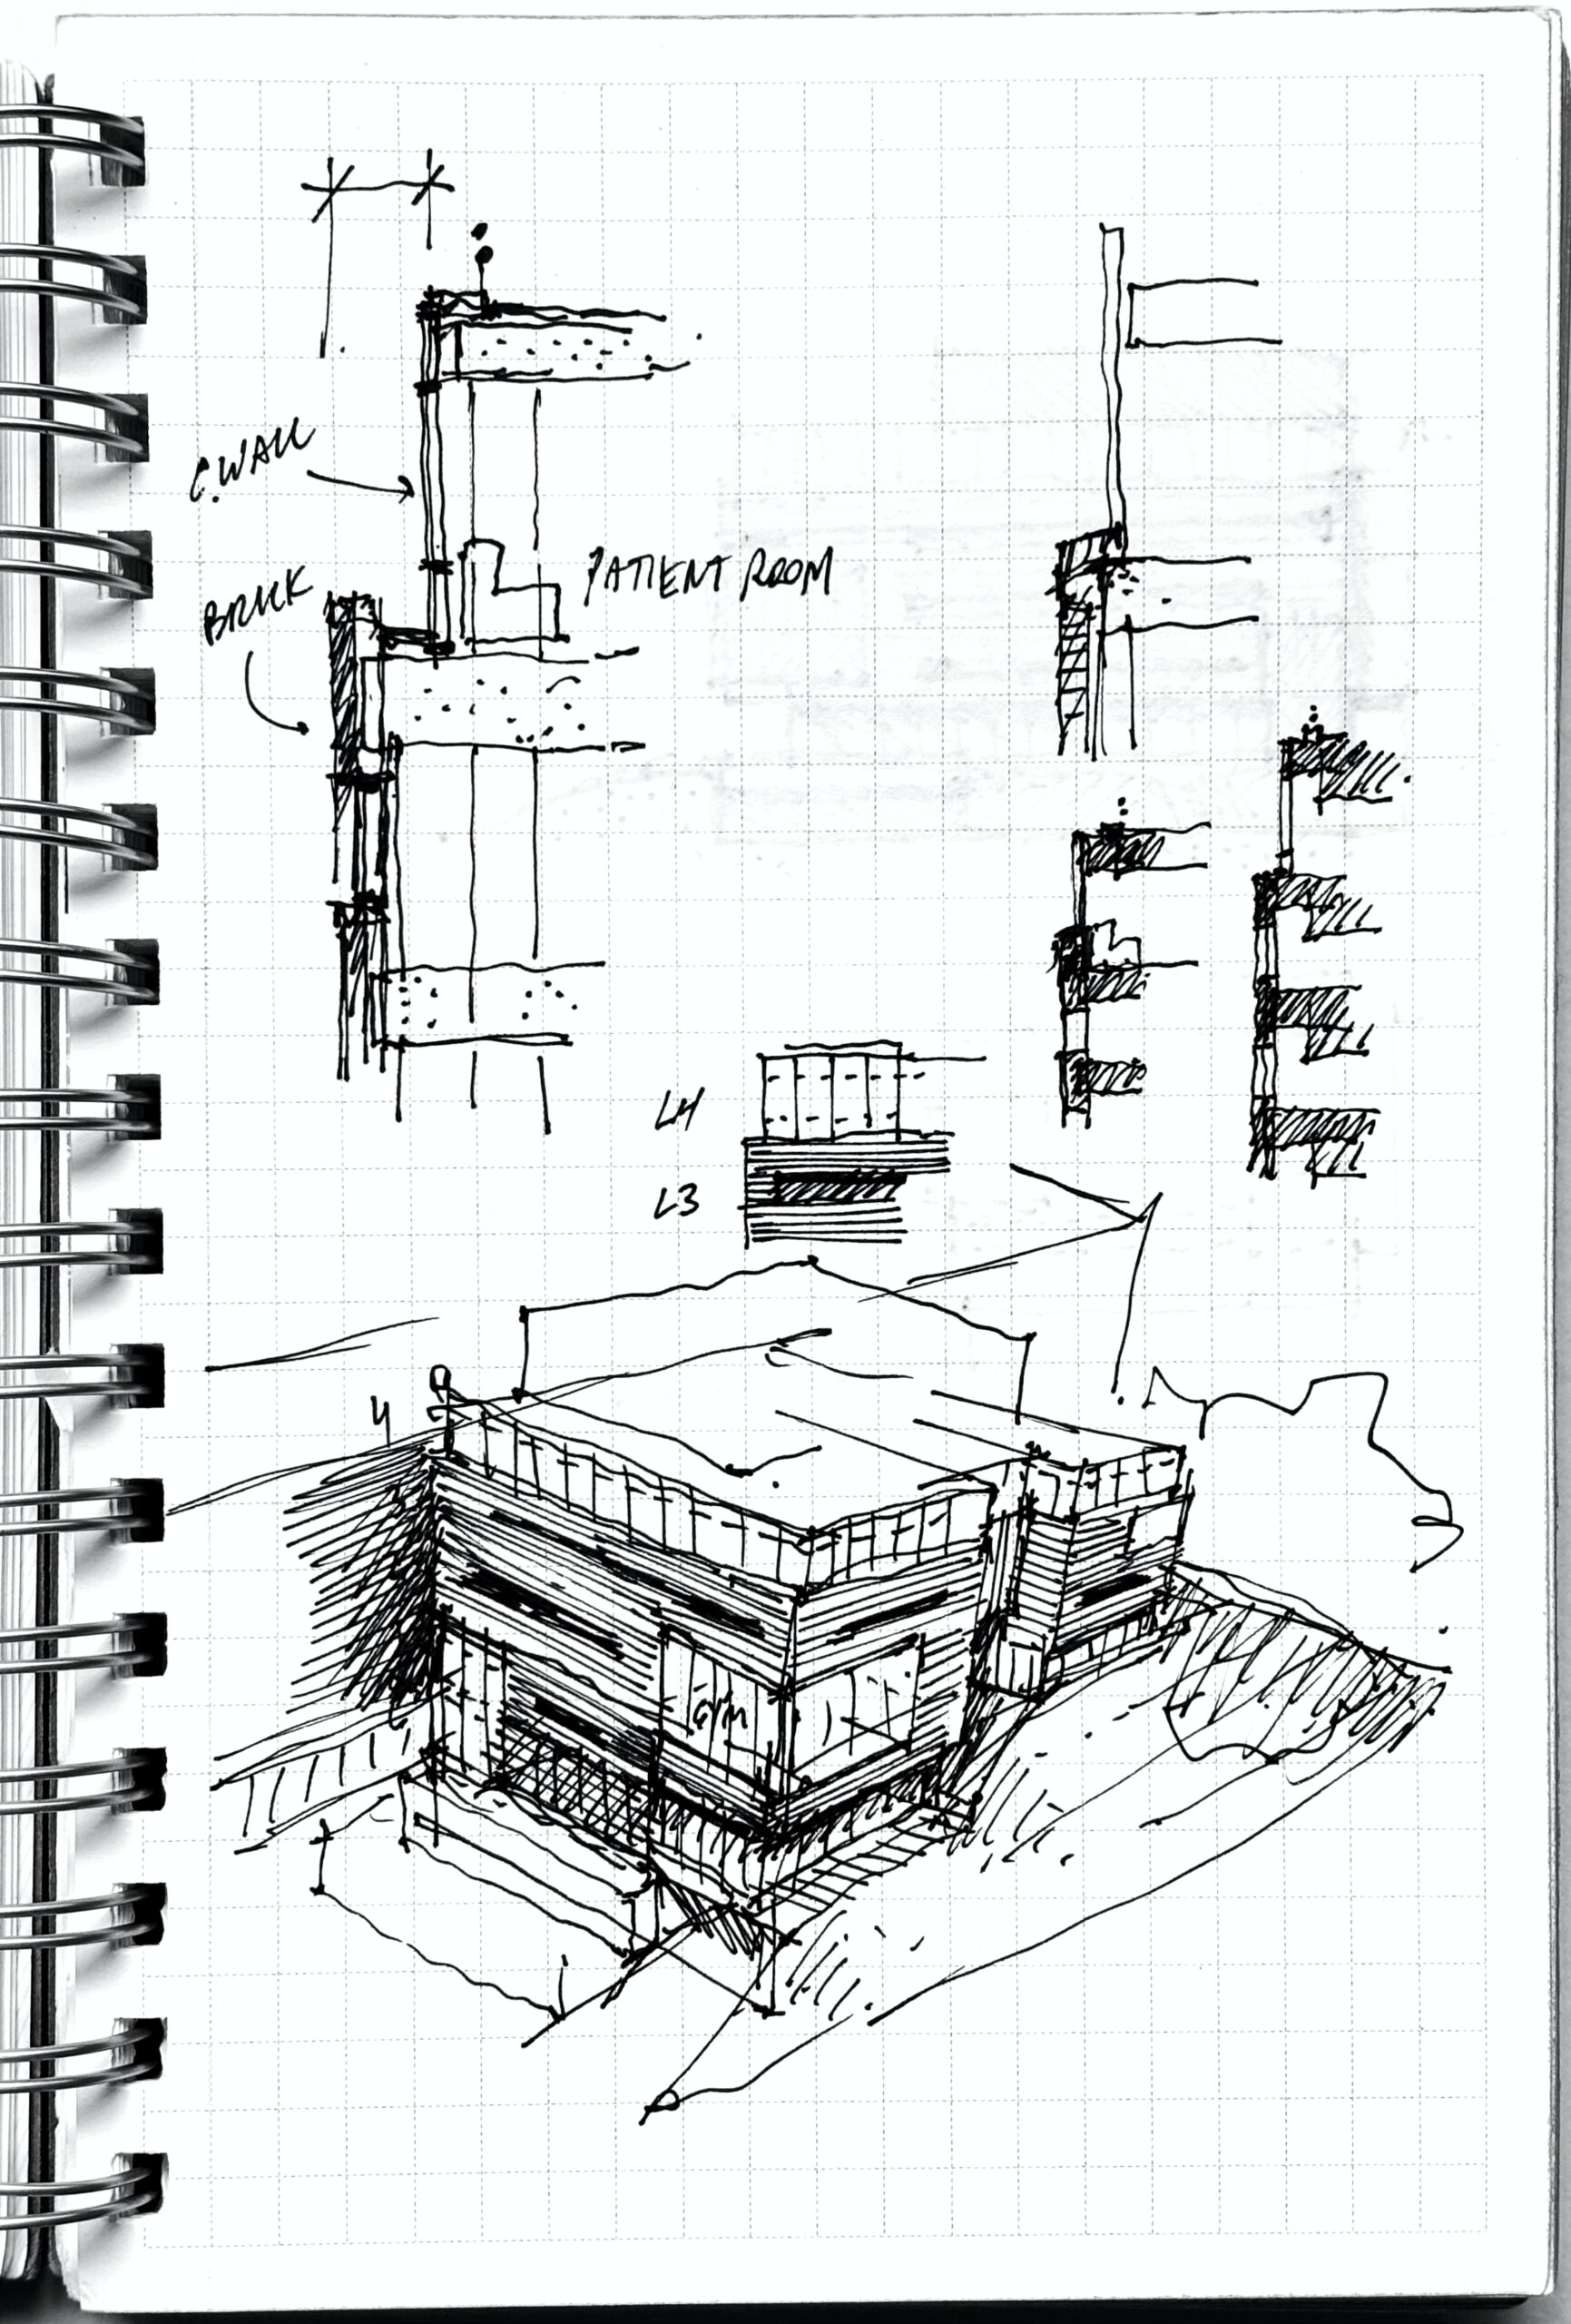 C.WALL
BRICK
PATIENT ROOM
L4
L3
4
GYM